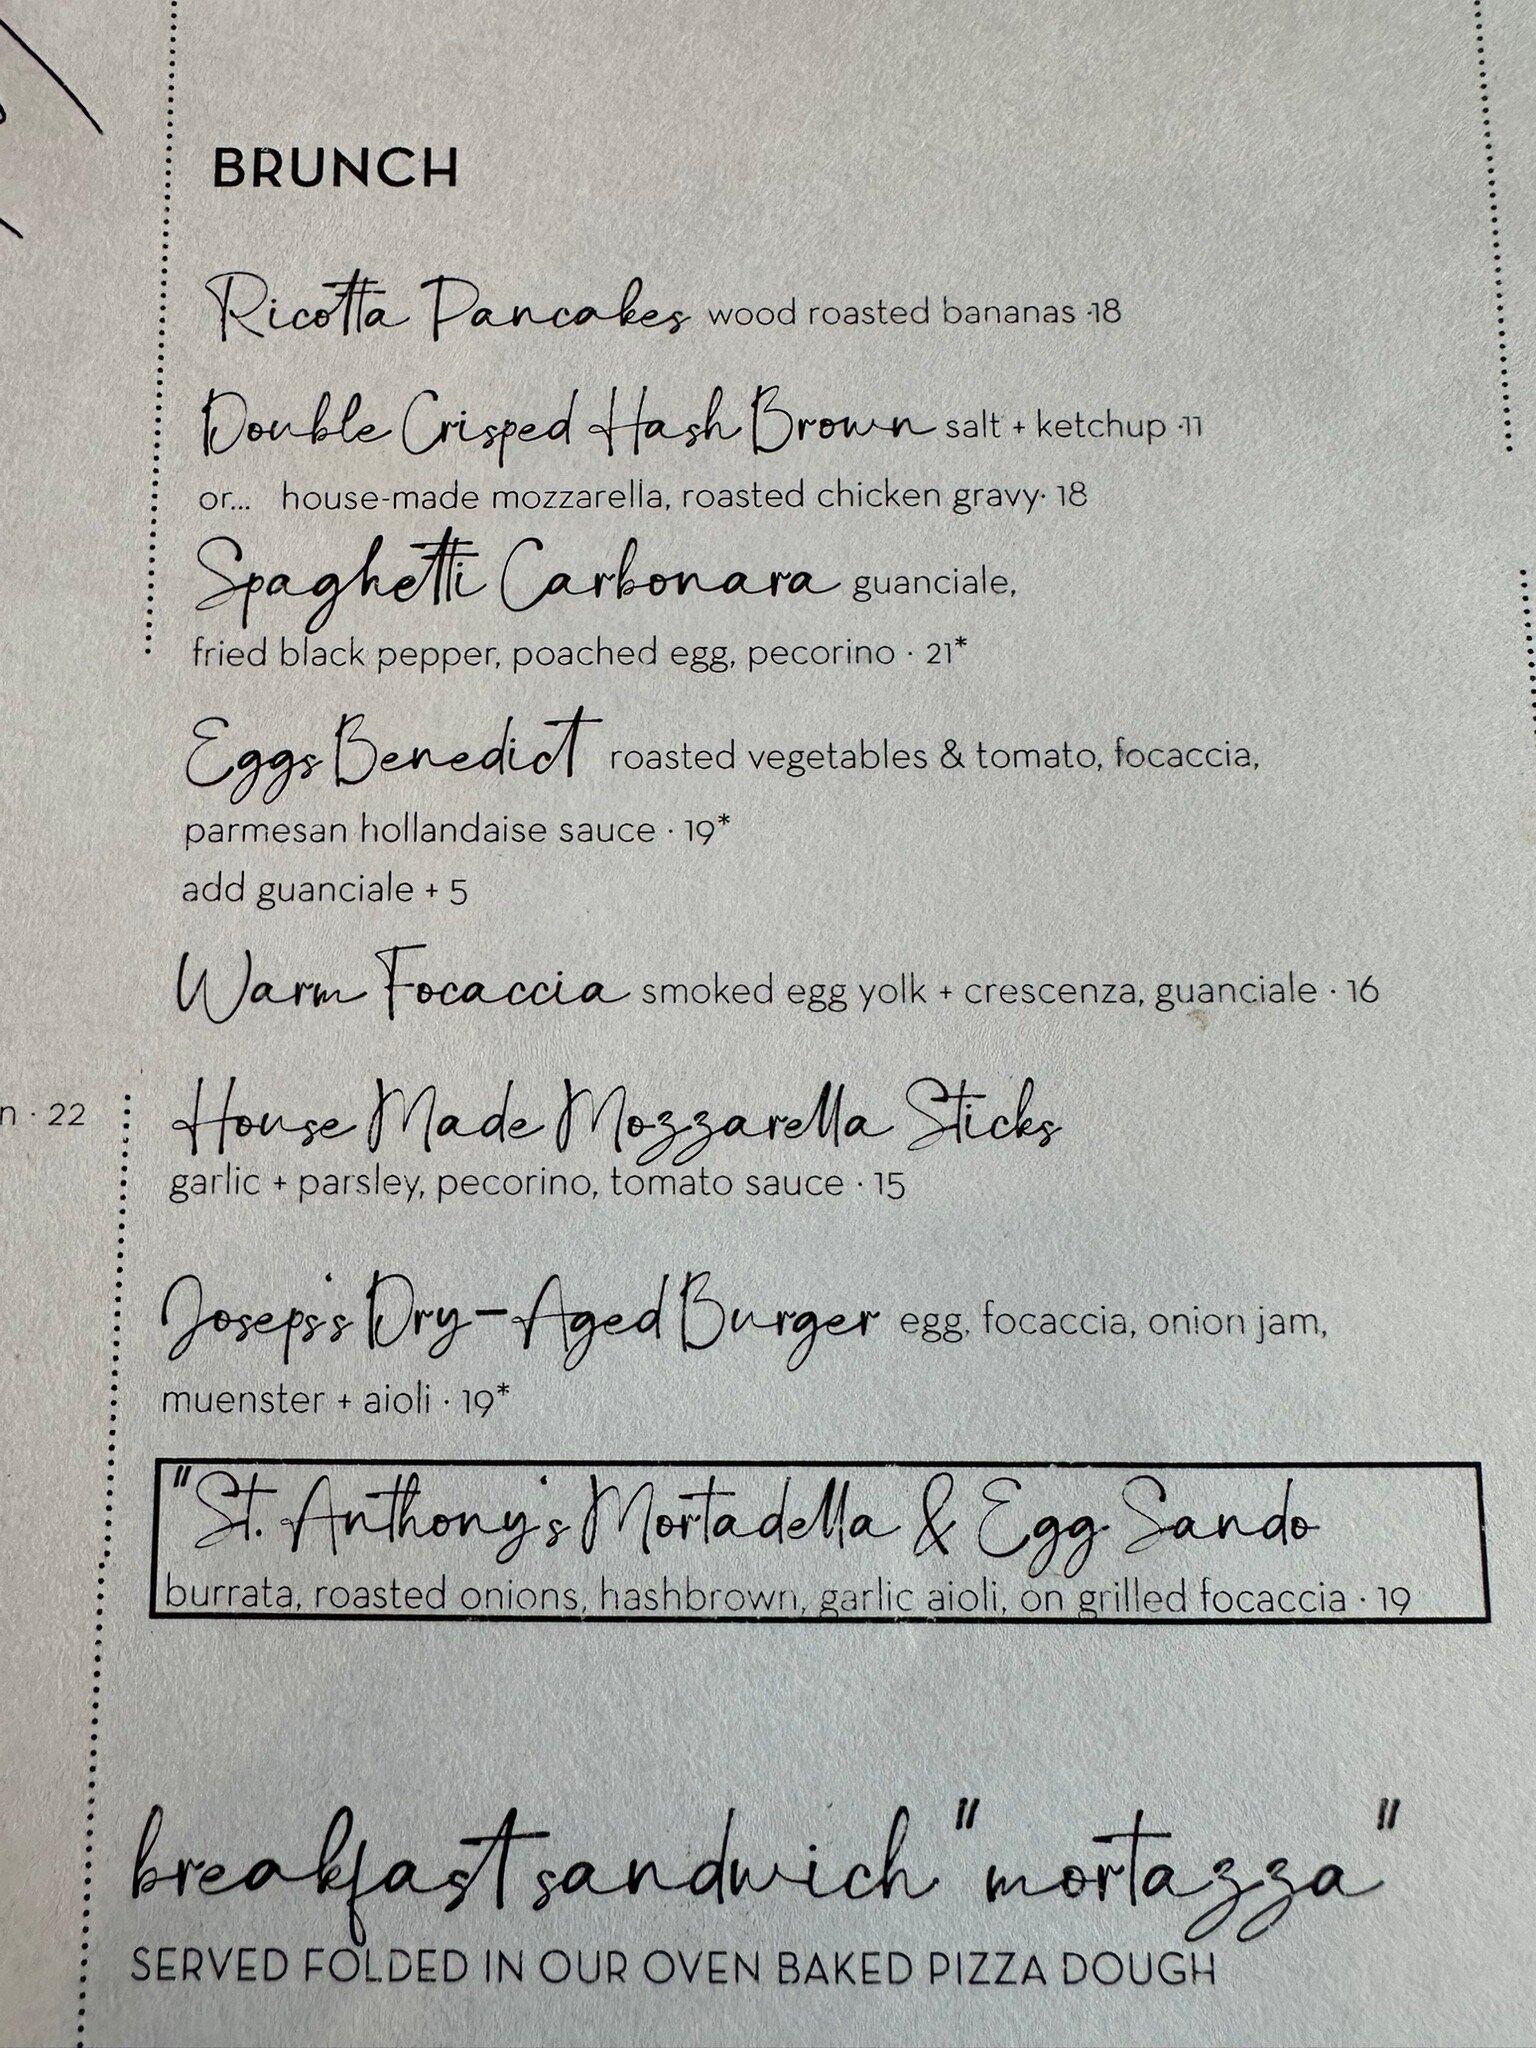 BRUNCH
Ricotta Pancakes wood roasted bananas ·18
Double Crisped Hash Brown salt + ketchup ·11
or... house-made mozzarella, roasted chicken gravy· 18
Spaghetti Carbonara guanciale,
fried black pepper, poached egg, pecorino · 21*
Eggs Benedict roasted vegetables & tomato, focaccia,
parmesan hollandaise sauce · 19*
add guanciale + 5
Warm Focaccia smoked egg yolk + crescenza, guanciale · 16
n · 22
House Made Mozzarella Sticks
garlic + parsley, pecorino, tomato sauce · 15
Joseps's Dry-Aged Burger egg, focaccia, onion jam,
muenster + aioli · 19*
"St. Anthony's Mortadella & Egg Sando
burrata, roasted onions, hashbrown, garlic aioli, on grilled focaccia · 19
breakfast sandwich "mortazza"
SERVED FOLDED IN OUR OVEN BAKED PIZZA DOUGH